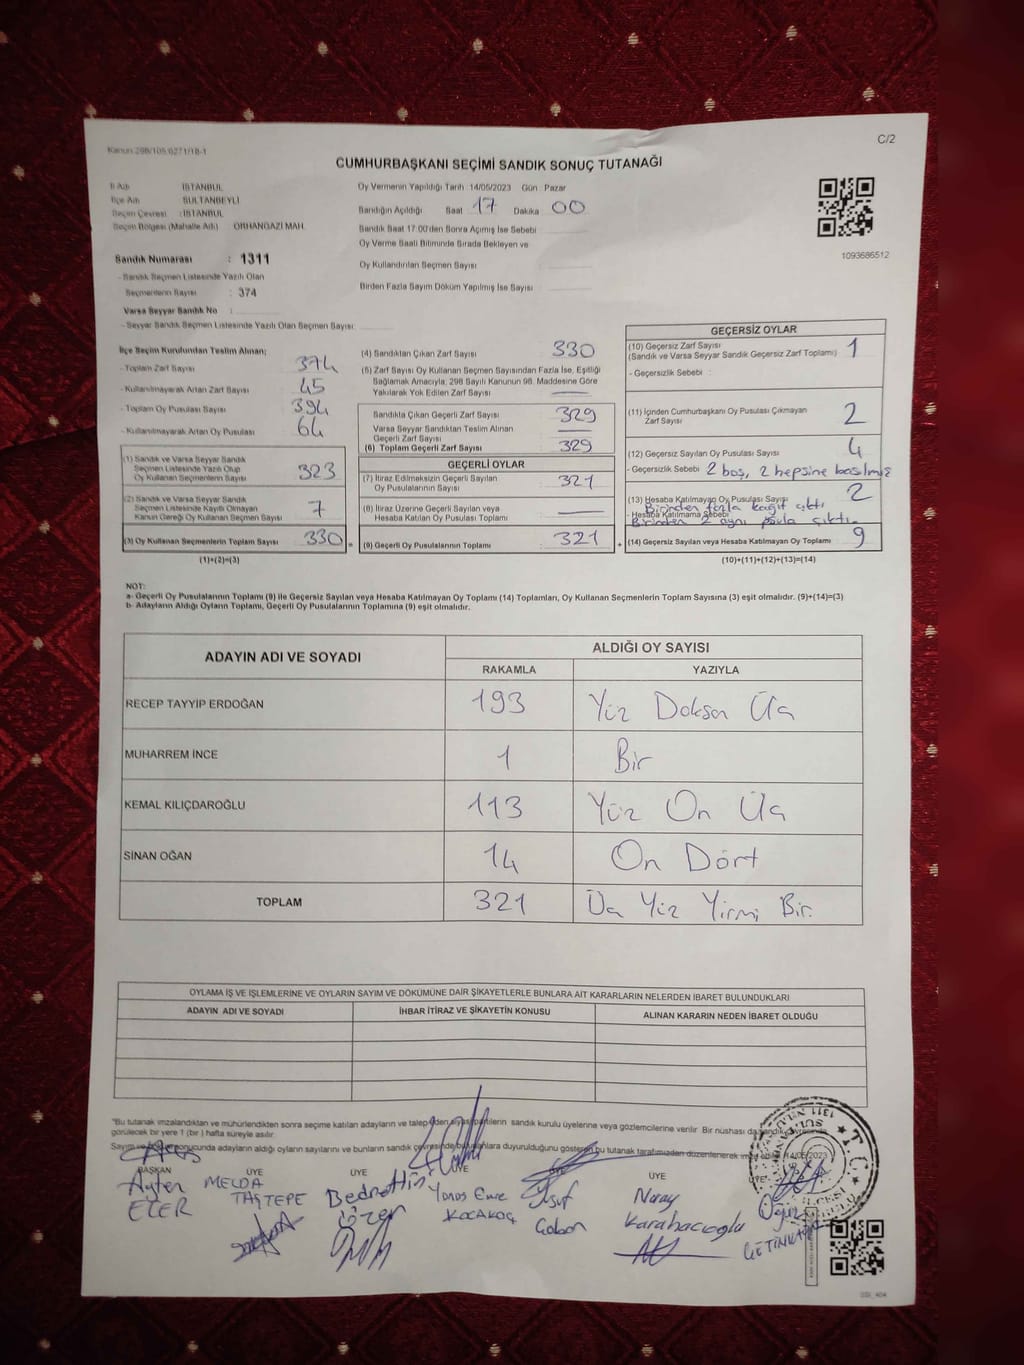 Kanun 298/105,6271/18-1
C/2
CUMHURBAŞKANI SEÇİMİ SANDIK SONUÇ TUTANAĞI
İl Adı İSTANBUL
İlçe Adı SULTANBEYLİ
Seçim Çevresi : İSTANBUL
Seçim Bölgesi (Mahalle Adı) ORHANGAZİ MAH.
Sandık Numarası : 1311
- Sandık Seçmen Listesinde Yazılı Olan
Seçmenlerin Sayısı : 374
Varsa Seyyar Sandık No :
- Seyyar Sandık Seçmen Listesinde Yazılı Olan Seçmen Sayısı:
Oy Vermenin Yapıldığı Tarih 14/05/2023 Gün Pazar
Sandığın Açıldığı Saat 17 Dakika 00
Sandık Saat 17:00'den Sonra Açımış İse Sebebi
Oy Verme Saati Bitiminde Sırada Bekleyen ve
Oy Kullandırılan Seçmen Sayısı :
Birden Fazla Sayım Döküm Yapılmış İse Sayısı :
1093686512
İlçe Seçim Kurulundan Teslim Alınan;
- Toplam Zarf Sayısı 374
- Kullanılmayarak Artan Zarf Sayısı 45
- Toplam Oy Pusulası Sayısı 394
- Kullanılmayarak Artan Oy Pusulası 64
(1) Sandık ve Varsa Seyyar Sandık
Seçmen Listesinde Yazılı Olup
Oy Kullanan Seçmen Sayısı 323
(2) Sandık ve Varsa Seyyar Sandık
Seçmen Listesinde Kayıtlı Olmayan
Kanun Gereği Oy Kullanan Seçmen Sayısı 7
(3) Oy Kullanan Seçmenlerin Toplam Sayısı 330 =
(1)+(2)=(3)
(4) Sandıktan Çıkan Zarf Sayısı 330
(5) Zarf Sayısı Oy Kullanan Seçmen Sayısından Fazla İse, Eşitliği
Sağlamak Amacıyla; 298 Sayılı Kanunun 98. Maddesine Göre
Yakılarak Yok Edilen Zarf Sayısı
Sandıkta Çıkan Geçerli Zarf Sayısı 329
Varsa Seyyar Sandıktan Teslim Alınan
Geçerli Zarf Sayısı
(6) Toplam Geçerli Zarf Sayısı 329
GEÇERLİ OYLAR
(7) İtiraz Edilmeksizin Geçerli Sayılan
Oy Pusulalarının Sayısı 321
(8) İtiraz Üzerine Geçerli Sayılan ve
Hesaba Katılan Oy Pusulası Toplamı
(9) Geçerli Oy Pusulalarının Toplamı 321 +
GEÇERSİZ OYLAR
(10) Geçersiz Zarf Sayısı 1
(Sandık ve Varsa Seyyar Sandık Geçersiz Zarf Toplamı)
- Geçersizlik Sebebi :
(11) İçinden Cumhurbaşkanı Oy Pusulası Çıkmayan
Zarf Sayısı 2
(12) Geçersiz Sayılan Oy Pusulası Sayısı 4
- Geçersizlik Sebebi 2 boş, 2 hepsine basılmış
(13) Hesaba Katılmayan Oy Pusulası Sayısı 2
Birinden fazla kağıt çıktı
- Hesaba Katılmama Sebebi
Birinden 2 aynı pusula çıktı.
(14) Geçersiz Sayılan veya Hesaba Katılmayan Oy Toplamı 9
(10)+(11)+(12)+(13)=(14)
NOT:
a- Geçerli Oy Pusulalarının Toplamı (9) ile Geçersiz Sayılan veya Hesaba Katılmayan Oy Toplamı (14) Toplamları, Oy Kullanan Seçmenlerin Toplam Sayısına (3) eşit olmalıdır. (9)+(14)=(3)
b- Adayların Aldığı Oyların Toplamı, Geçerli Oy Pusulalarının Toplamına (9) eşit olmalıdır.
ADAYIN ADI VE SOYADI
ALDIĞI OY SAYISI
RAKAMLA YAZIYLA
RECEP TAYYİP ERDOĞAN 193 Yüz Doksan Üç
MUHARREM İNCE 1 Bir
KEMAL KILIÇDAROĞLU 113 Yüz On Üç
SİNAN OĞAN 14 On Dört
TOPLAM 321 Üç Yüz Yirmi Bir.
OYLAMA İŞ VE İŞLEMLERİNE VE OYLARIN SAYIM VE DÖKÜMÜNE DAİR ŞİKAYETLERLE BUNLARA AİT KARARLARIN NELERDEN İBARET BULUNDUKLARI
ADAYIN ADI VE SOYADI İHBAR İTİRAZ VE ŞİKAYETİN KONUSU ALINAN KARARIN NEDEN İBARET OLDUĞU
"Bu tutanak imzalandıktan ve mühürlendikten sonra seçime katılan adayların ve talep eden siyasi partilerin sandık kurulu üyelerine veya gözlemcilerine verilir. Bir nüshası da sandık
görülecek bir yere 1 (bir) hafta süreyle asılır.
Sayım sonucunda adayların aldığı oyların sayılarını ve bunların sandık duyurulduğunu gösteren bu tutanak tarafımızdan düzenlenerek
BAŞKAN ÜYE ÜYE ÜYE ÜYE ÜYE
Ayten ECER
MELDA TAŞTEPE
Bedrettin Özer
Yunus Emre KOCAKOÇ
Yusuf Çoban
Nuray Karahacıoğlu
Oğuz ÇETİNKAYA
SSİ_404